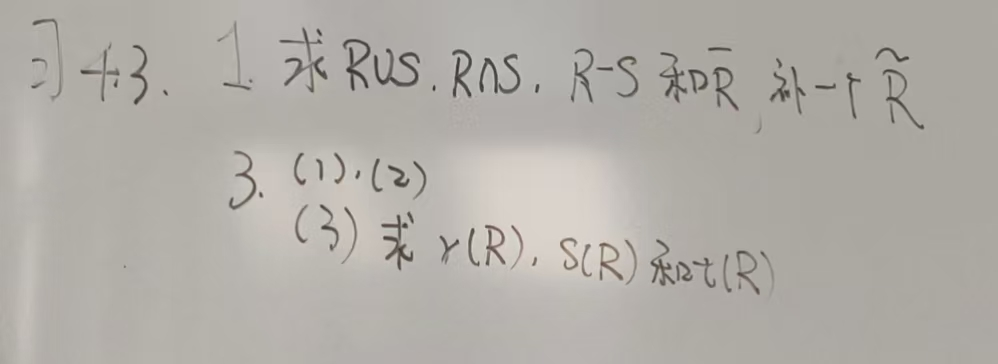 习4.3. 1. 求 R∪S, R∩S, R-S 和 R̄, 补一个 R̃
3. (1), (2)
(3) 求 r(R), S(R) 和 t(R)